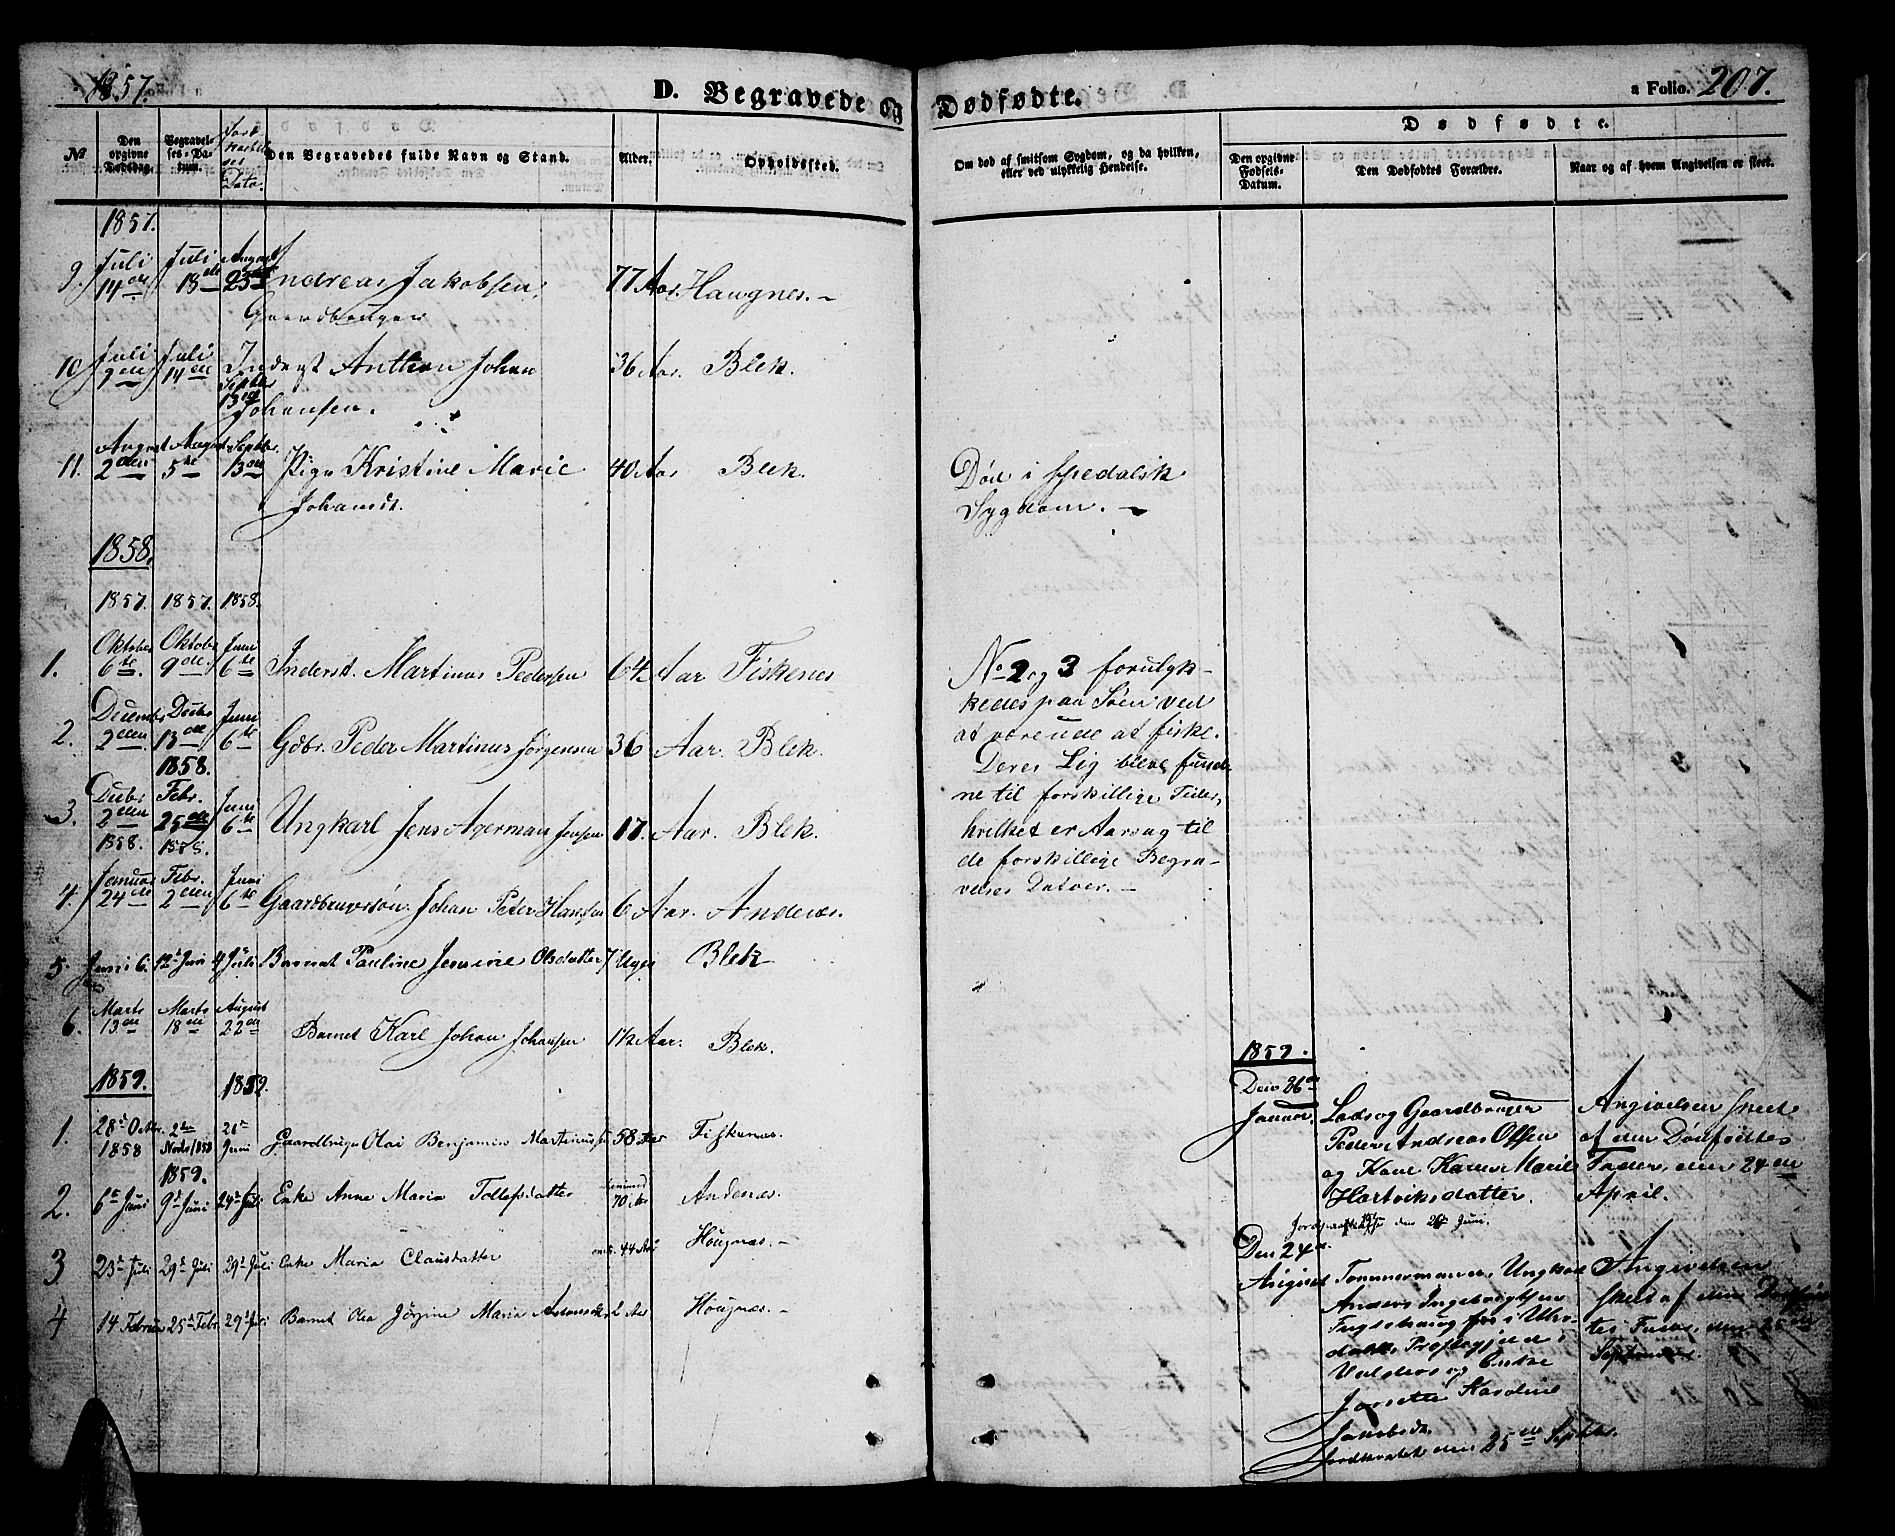 1857.
D. Begravede og Dødfødte.
a Folio. 207.
No
Den opgivne Dødsdag.
Begravelses-Datum.
Data.
Den Begravedes fulde Navn og Stand.
Alder.
Opholdssted.
Om død af smitsom Sygdom, og da hvilken, eller ved ulykkelig Hendelse.
Dødfødte.
Den opgivne Fødsels-Datum.
Den Dødfødtes Forældre.
Naar og af hvem Angivelsen er skeet.
1857.
9. Juli 14de Juli 18de August 23de Andreas Jakobsen 77 Aar. Haugnes.
Gaardbruger
10 Juli 9de Juli 14de Septbr 13de Inderst Anthon Johan 36 Aar. Blek.
Johansen.
11. August 2den August 5te Septbr. 13de Pige Kristine Marie 40 Aar Blek. Død i spedalsk
Johansdt. Sygdom.
1858.
1857. 1857. 1858.
1. Oktober 6te Oktober 9de Juni 6te Inderst. Martinus Pedersen 64 Aar Fiskenes
2. Decembr 2den Decbr 13de Juni 6te Gdbr. Peder Martinus Jørgensen 36 Aar. Blek.
1858.
3. Decbr 2den Febr. 25de Juni 6te Ungkarl Jens Agerman Jensen 17. Aar. Blek.
1858. 1858.
4. Januar 24de Febr. 2den Juni 6te Gaardbrugersøn Johan Peter Hansen 6 Aar. Andenæs.
5. Juni 6. 12te Juni 4 Juli Barnet Pauline Jensine Olsdatter 7 Uger Blek
6. Marts 13de Marts 18de August 22de Barnet Karl Johan Johansen 1½ Aar. Blek.
No 2 og 3 forulyk-
kedes paa Søen ved
at være ude at fiske.
Deres Lig bleve fund-
ne til forskillige Tider,
hvilket er Aarsag til
de forskillige Begra-
velses Datoer.
1859. 1859.
1. 28de Octbr. 1858 2den Novbr 1858 26de Juni Gaardbruger Olai Benjamin Martinussen 58 Aar Fiskenæs.
1859.
2. 6te Juni 9de Juni 24de Juli Enke Anne Maria Tollefsdatter 70 Aar Andenæs.
3 23de Juli 29de Juli 29de Juli Enke Maria Clausdatter 44 Aar Hougnæs.
4 14 Februar 25de Febr. 29de Juli Barnet Olea Jørgine Maria 2 Aar Hougnæs.
1859.
Den 26de
Januar
Lods og Gaardbruger
Peder Andreas Olsen
og Kone Karen Marie
Hartviksdatter.
Angivelsen skeet
af den Dødfødtes
Fader, den 24de
April.
Jordpaakastelse den 26de Juni.
Den 24de
August
Tømmermand, Ungkarl
Anders Ingebregtsen
Præstegjeld i
Valders og Enke
Josette Karoline
Jakobsdt.
Jordkastet den 25de Septbr.
Angivelsen
skeet af den Dødfød-
tes Fader, den 25de
September.